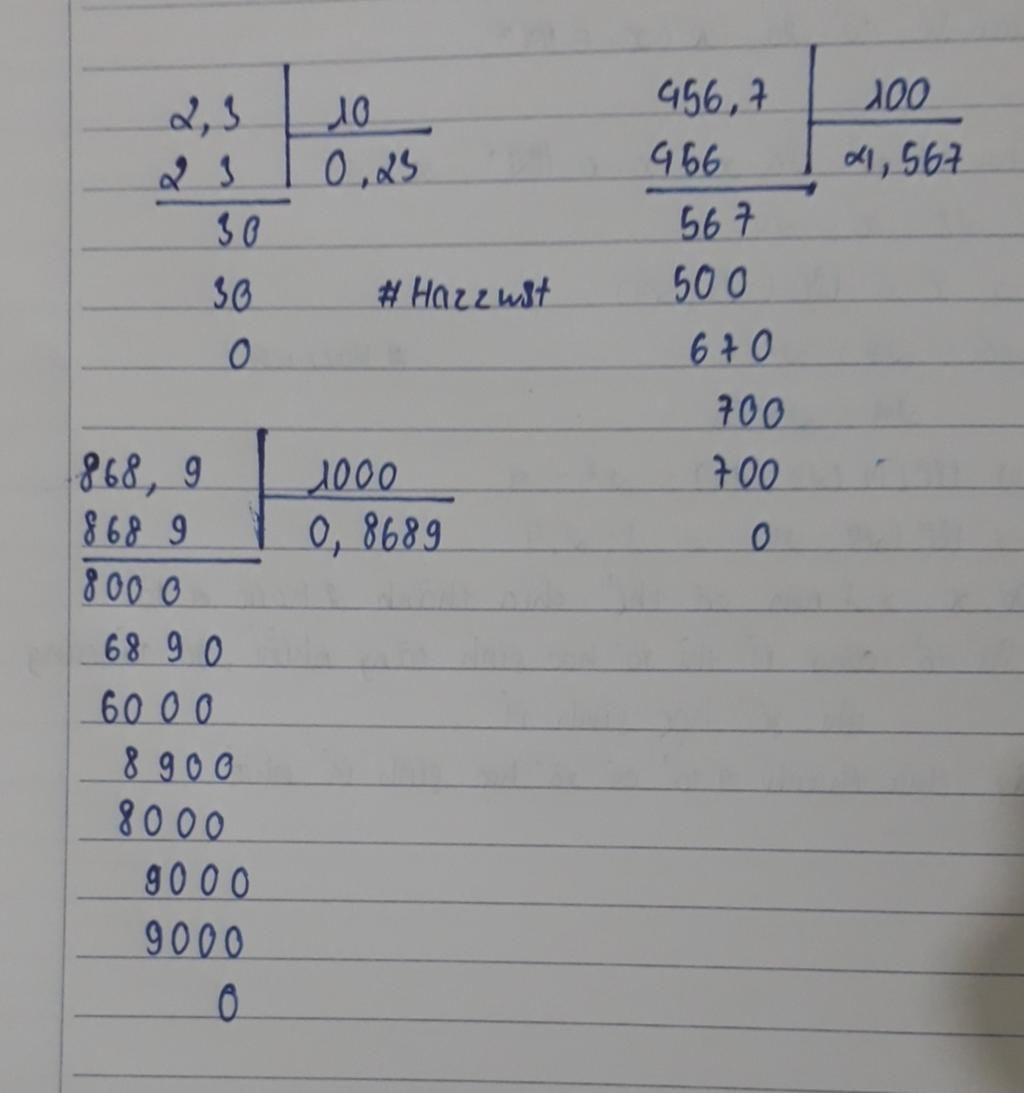 2,3 10
23 0,23
30
30
0
#Hazzwst
456,7 100
456 4,567
567
500
670
700
700
0
868,9 1000
8689 0,8689
8000
6890
6000
8900
8000
9000
9000
0